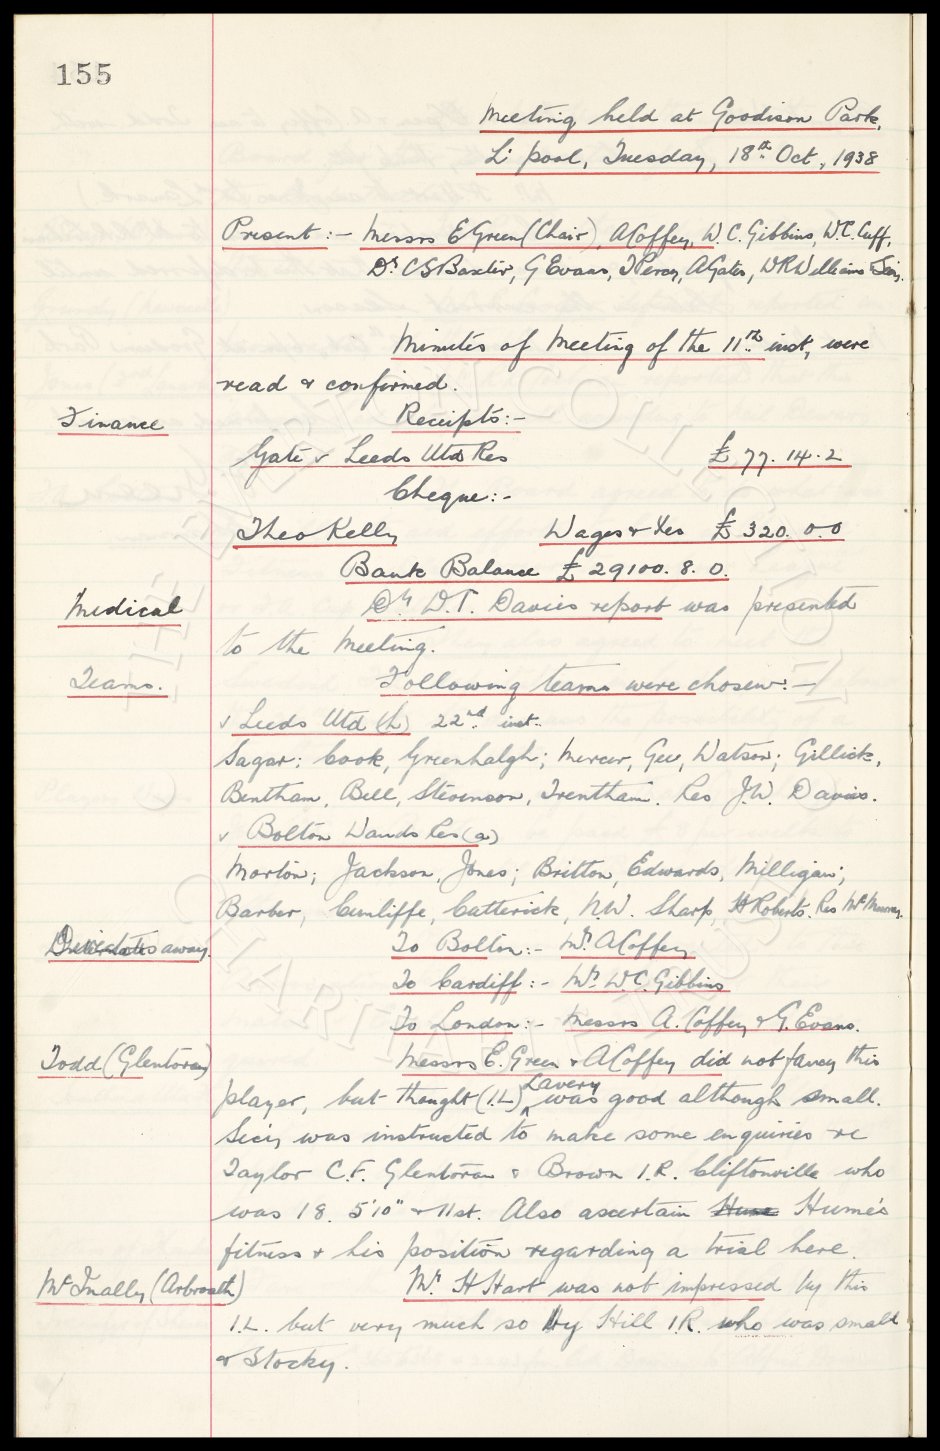 155
Meeting held at Goodison Park,
L'pool, Tuesday, 18th Oct, 1938
Present :- Messrs E Green (Chair), A Coffey, W. C. Gibbins, W.C. Cuff,
Dr C S Baxter, G Evans, T Percy, A Gates, W R Williams & Secy.
Minutes of Meeting of the 11th inst, were
read & confirmed.
Finance
Receipts:-
Gate v Leeds Utd Res £ 77. 14. 2
Cheque:-
Theo Kelly Wages & Xes £ 320. 0. 0
Bank Balance £ 29100. 8. 0.
Medical
Dr D. T. Davies report was presented
to the Meeting.
Teams.
Following teams were chosen:-
v Leeds Utd (h) 22nd inst.
Sagar; Cook, Greenhalgh; Mercer, Gee, Watson; Gillick,
Bentham, Bell, Stevenson, Trentham. Res J.W. Davies.
v Bolton Wands Res (a)
Morton; Jackson, Jones; Britton, Edwards, Milligan;
Barber, Cunliffe, Catterick, N.W. Sharp, H Roberts. Res McMurray.
Directors away.
To Bolton:- Mr A Coffey
To Cardiff:- Mr W.C. Gibbins
To London:- Messrs A. Coffey & G. Evans.
Todd (Glentoran)
Messrs E. Green & A Coffey did not fancy this
player, but thought (I.L) Lavery was good although small.
Sec'y was instructed to make some enquiries re
Taylor C.F. Glentoran & Brown I.R. Cliftonville who
was 18. 5'10" & 11st. Also ascertain Hume's
fitness & his position regarding a trial here.
McInally (Arbroath)
Mr. H Hart was not impressed by this
I.L. but very much so by Hill I.R. who was small
& Stocky.
EVERTON COLLECTION
CHARITABLE